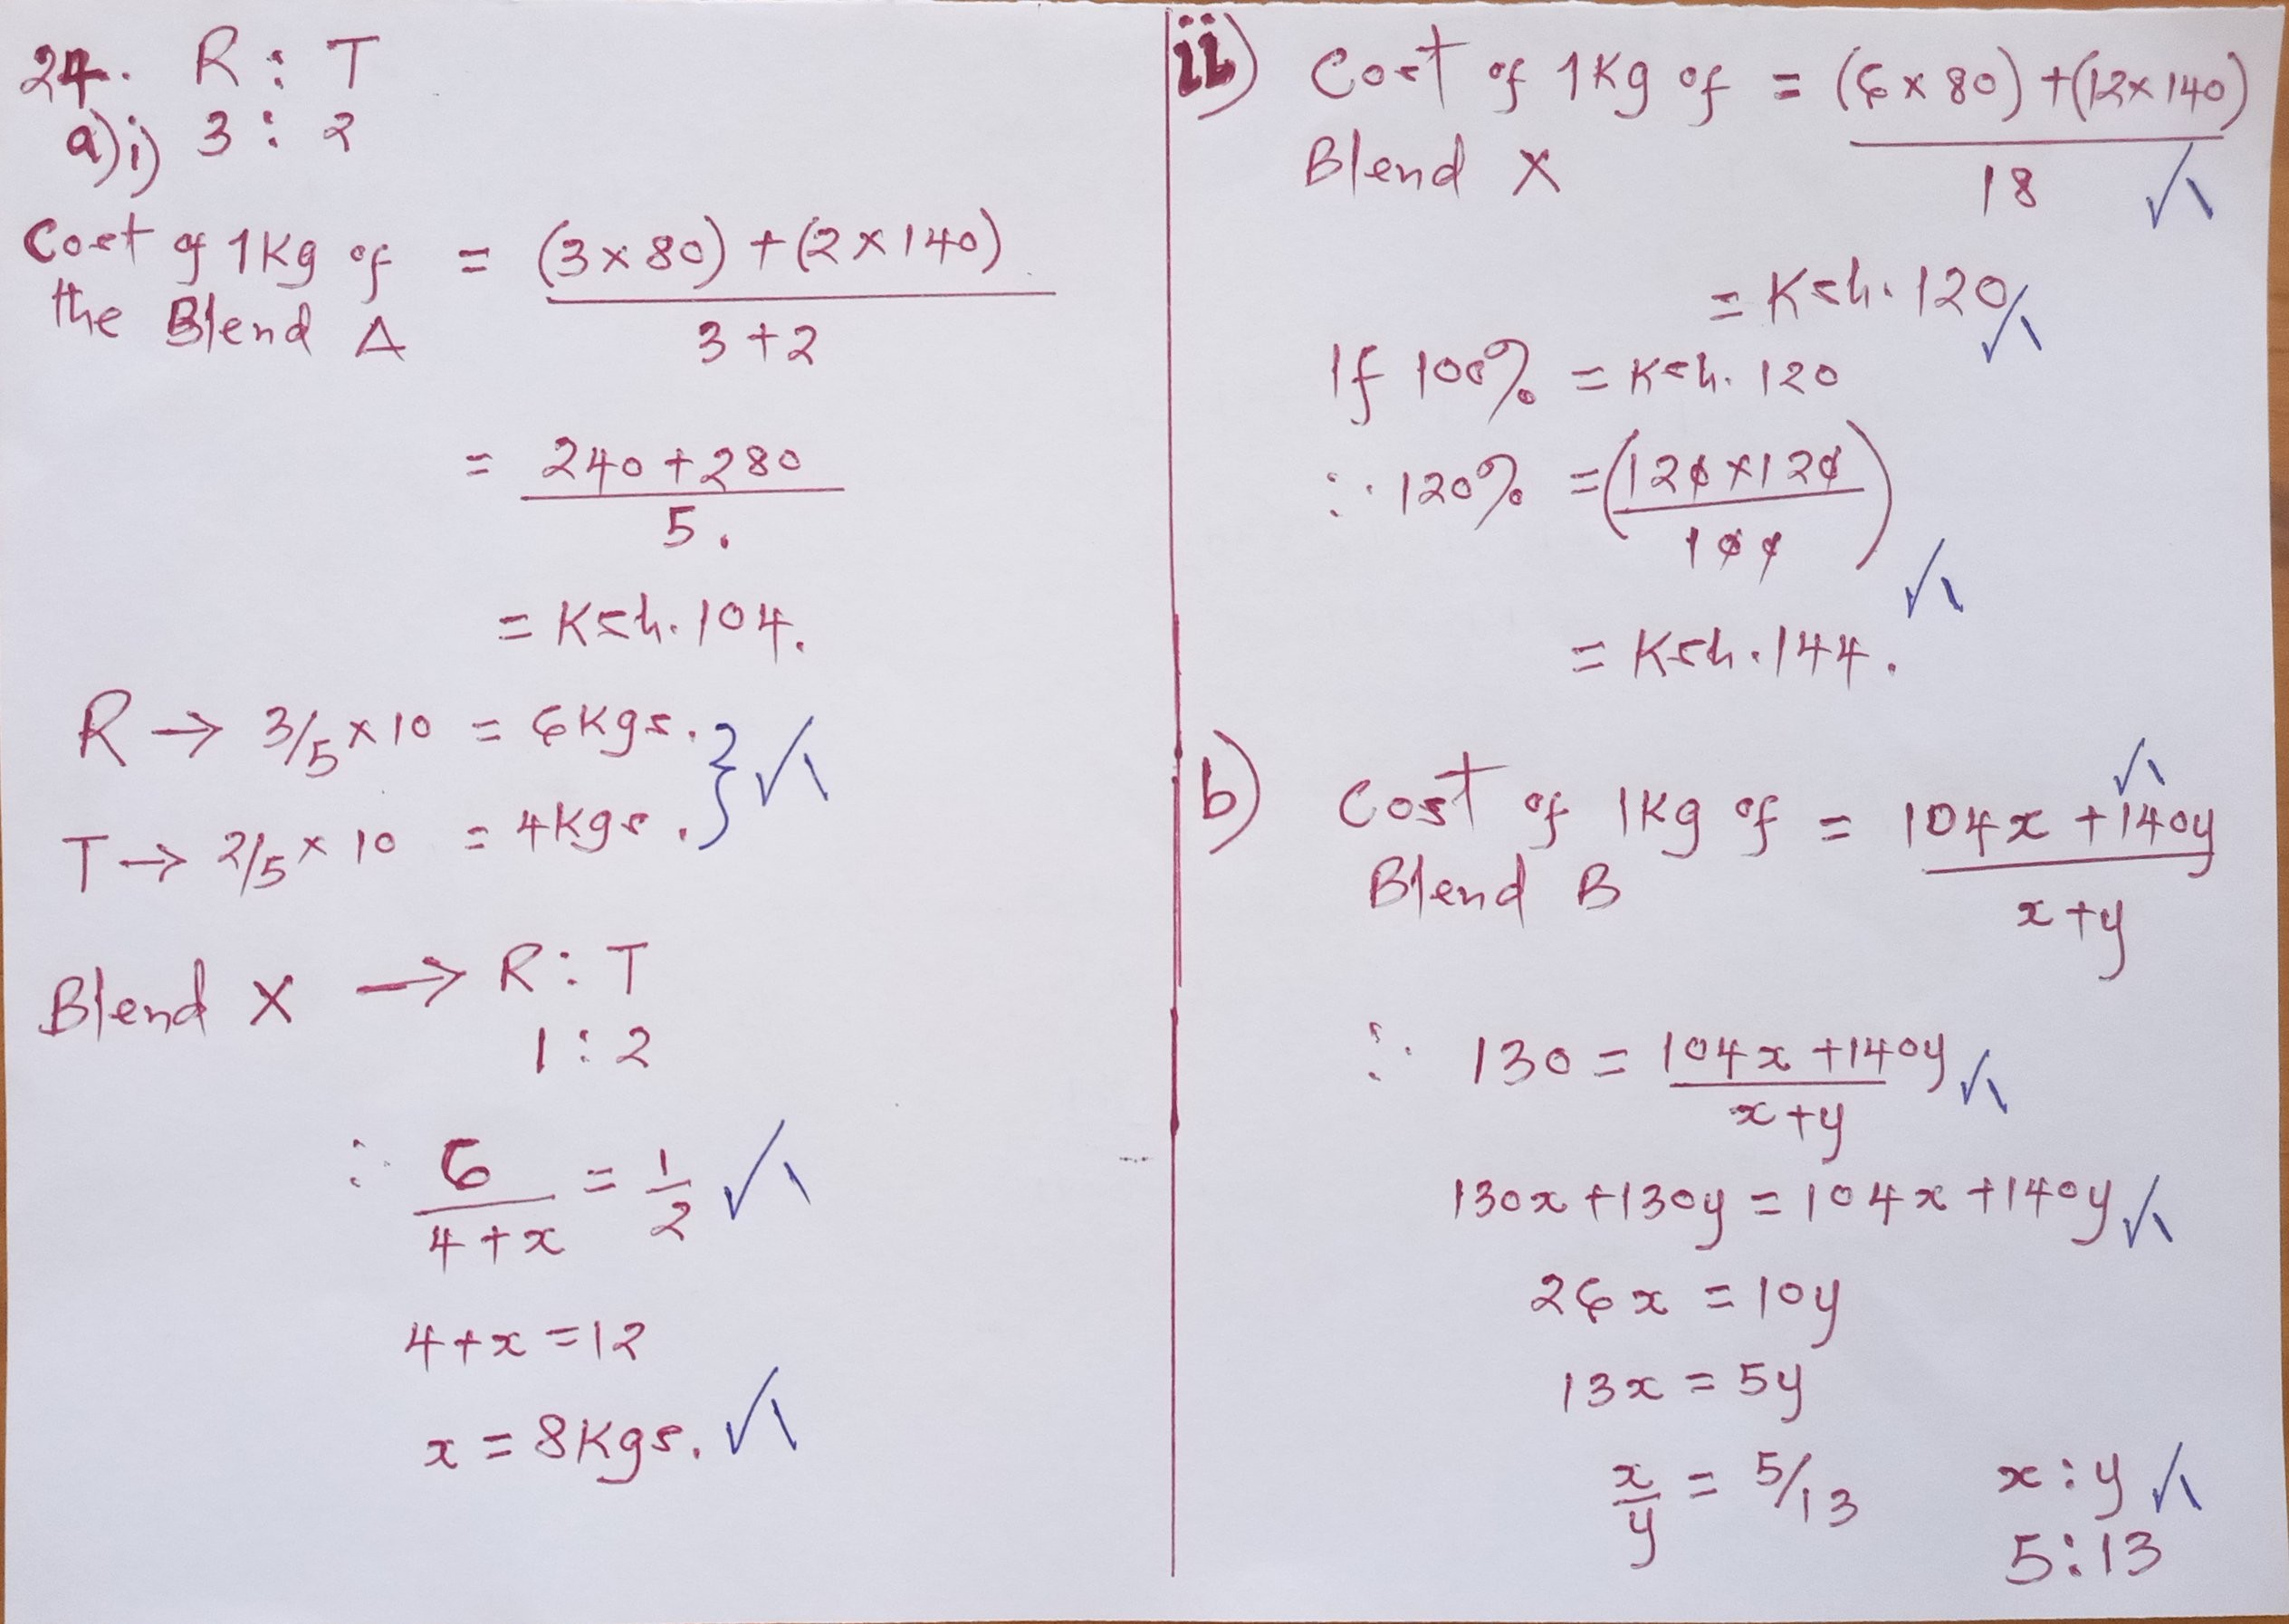 24. R : T
a)i) 3 : 2
Cost of 1Kg of the Blend A = (3 x 80) + (2 x 140)
3 + 2
= 240 + 280
5.
= Ksh. 104.
R → 3/5 x 10 = 6Kgs.
T → 2/5 x 10 = 4Kgs.
Blend X → R : T
1 : 2
∴ 6/(4+x) = 1/2
4 + x = 12
x = 8Kgs.
ii) Cost of 1Kg of Blend X = (6 x 80) + (12 x 140)
18
= Ksh. 120
If 100% = Ksh. 120
∴ 120% = (120 x 120
100)
= Ksh. 144.
b) Cost of 1Kg of Blend B = 104x + 140y
x + y
∴ 130 = 104x + 140y
x + y
130x + 130y = 104x + 140y
26x = 10y
13x = 5y
x/y = 5/13 x : y
5 : 13